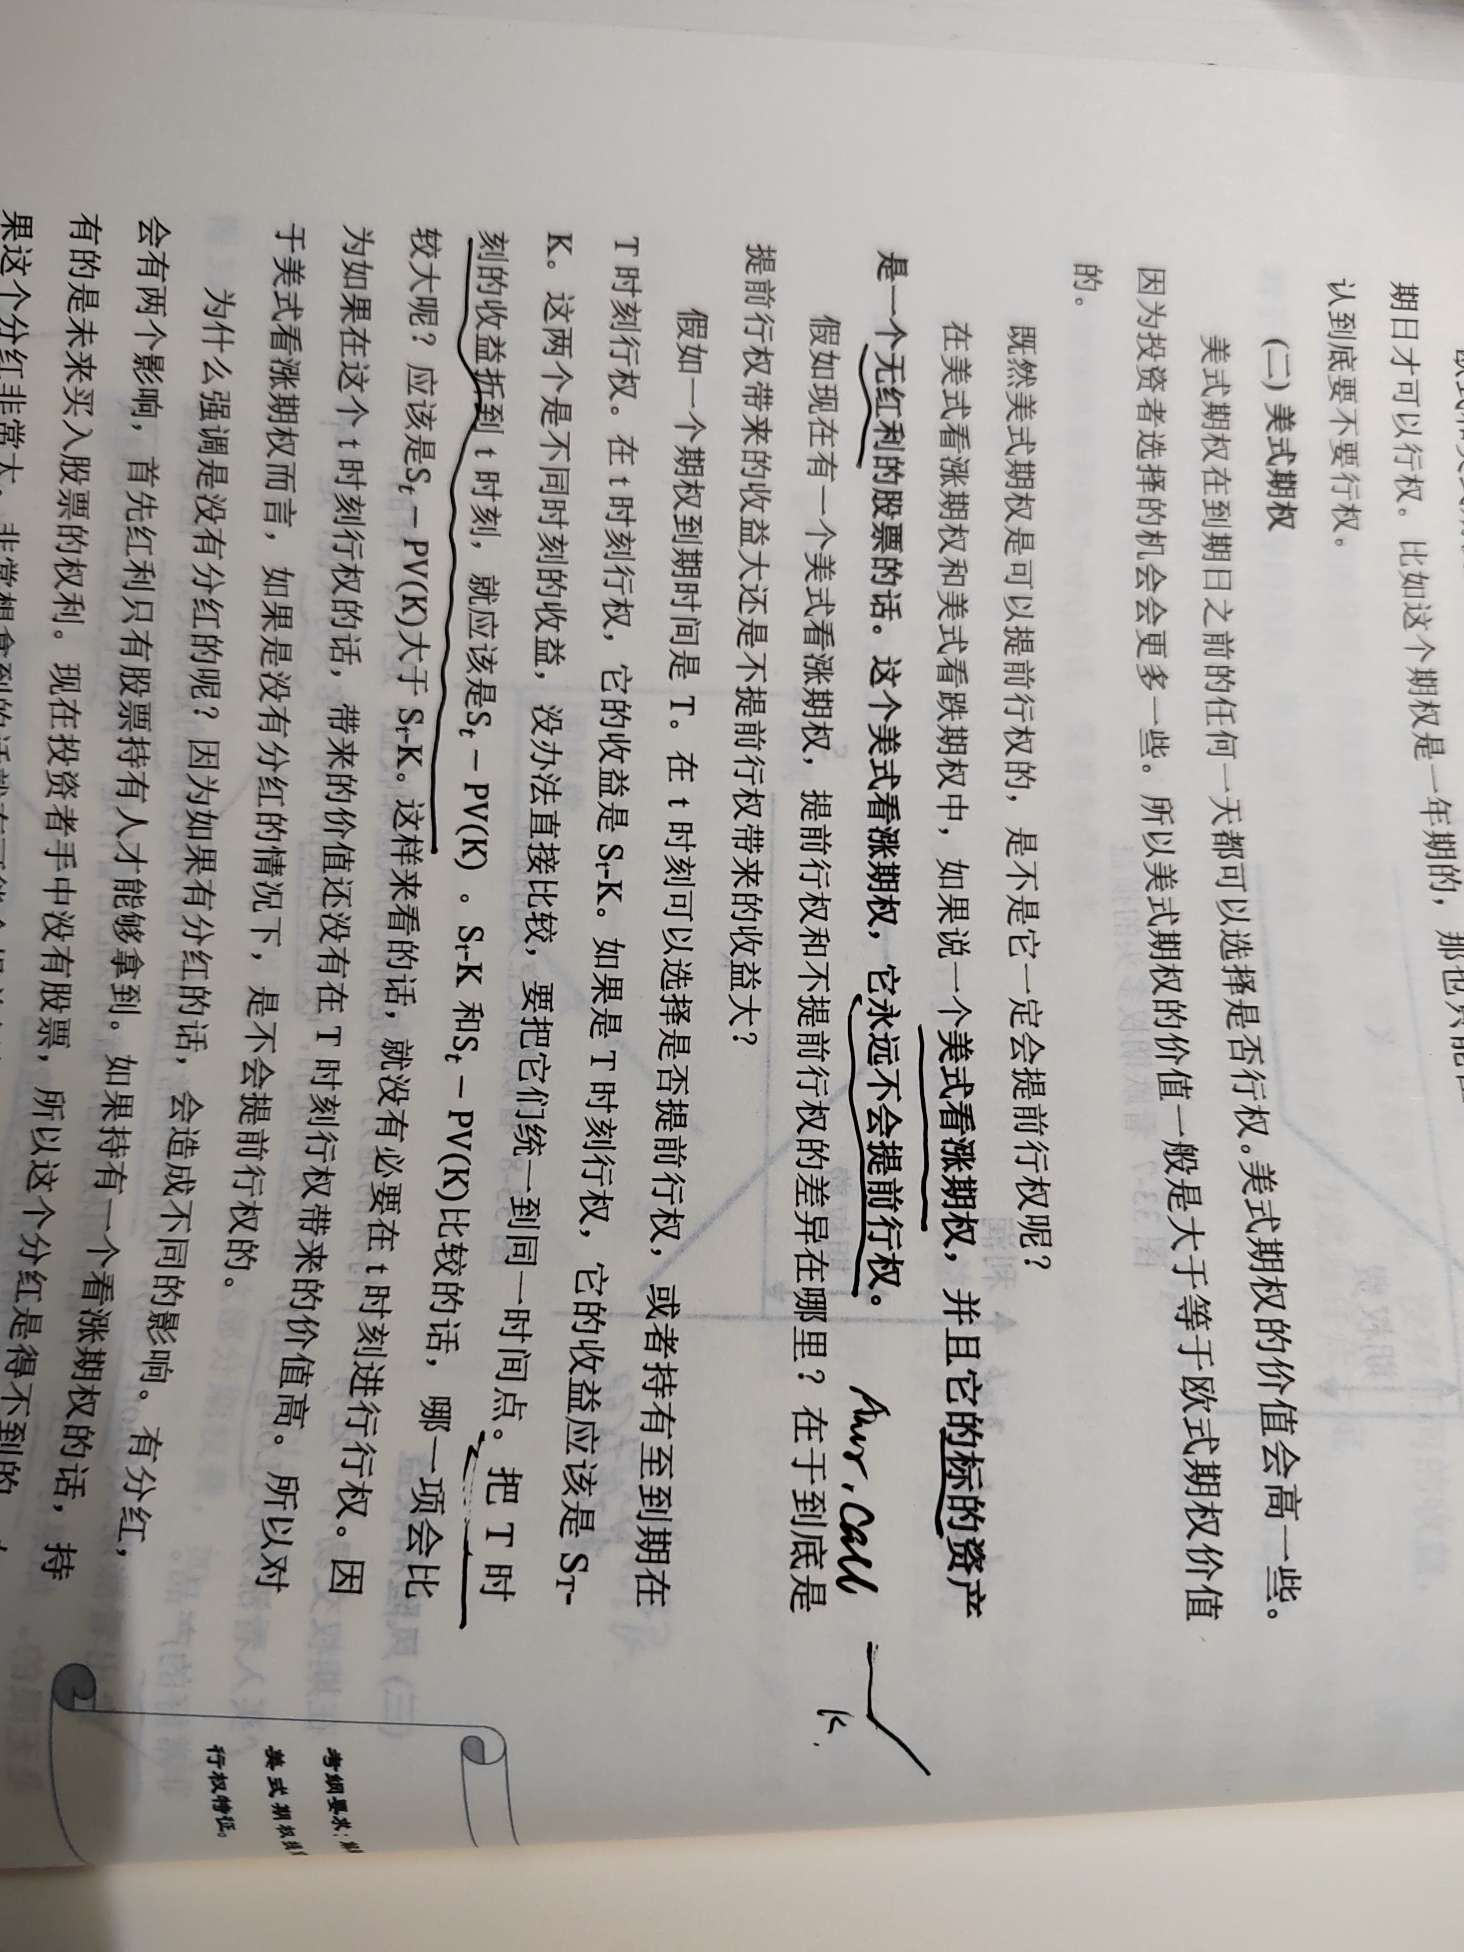 期日才可以行权。比如这个期权是一年期的，那也只能在
认到底要不要行权。
(二) 美式期权
美式期权在到期日之前的任何一天都可以选择是否行权。美式期权的价值会高一些。
因为投资者选择的机会会更多一些。所以美式期权的价值一般是大于等于欧式期权价值
的。
既然美式期权是可以提前行权的，是不是它一定会提前行权呢？
在美式看涨期权和美式看跌期权中，如果说一个美式看涨期权，并且它的标的资产
是一个无红利的股票的话。这个美式看涨期权，它永远不会提前行权。
Amr. Call
K.
假如现在有一个美式看涨期权，提前行权和不提前行权的差异在哪里？在于到底是
提前行权带来的收益大还是不提前行权带来的收益大？
假如一个期权到期时间是 T。在 t 时刻可以选择是否提前行权，或者持有至到期在
T 时刻行权。在 t 时刻行权，它的收益是 St-K。如果是 T 时刻行权，它的收益应该是 ST-
K。这两个是不同时刻的收益，没办法直接比较，要把它们统一到同一时间点。把 T 时
刻的收益折到 t 时刻，就应该是St − PV(K) 。St-K 和St − PV(K)比较的话，哪一项会比
较大呢？应该是St − PV(K)大于 St-K。这样来看的话，就没有必要在 t 时刻进行行权。因
为如果在这个 t 时刻行权的话，带来的价值还没有在 T 时刻行权带来的价值高。所以对
于美式看涨期权而言，如果是没有分红的情况下，是不会提前行权的。
为什么强调是没有分红的呢？因为如果有分红的话，会造成不同的影响。有分红，
会有两个影响，首先红利只有股票持有人才能够拿到。如果持有一个看涨期权的话，持
有的是未来买入股票的权利。现在投资者手中没有股票，所以这个分红是得不到的
果这个分红非常大，非常想拿到的话就有可能
考纲要求：
美式期权
行权特征。